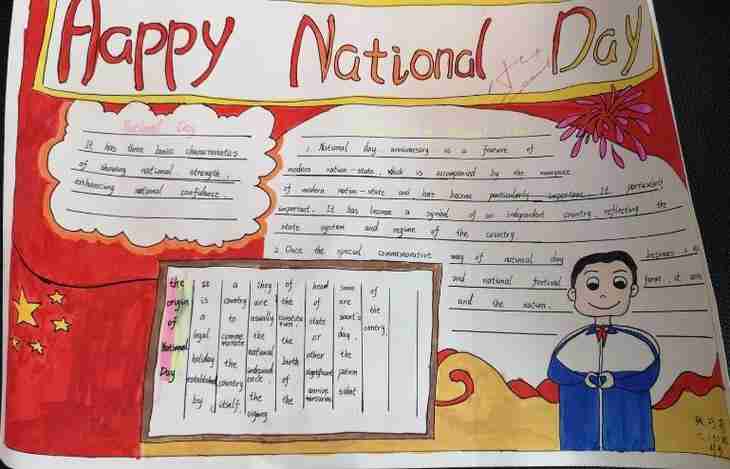 Happy National Day
National Day
It has three basic characteristics
of showing national strength,
enhancing national confidence.
1. National day anniversary is a feature of
modern nation-state, which is accompanied by the
of modern nation-state and has become particularly important. It particularly
important. It has become a symbol of an independent country, reflecting the
state system and regime of the country
2. Once the special commemorative way of national day becomes a
and national festival forms, it
and the nation.
the origin of National Day
is a legal holiday established by
a country to comme morate the country itself.
they are usually the national independ ence, the signing
of the constitu the birth of the
head of state or other significant annive rsaries
some are saint's day, the patron saint
of the contry.